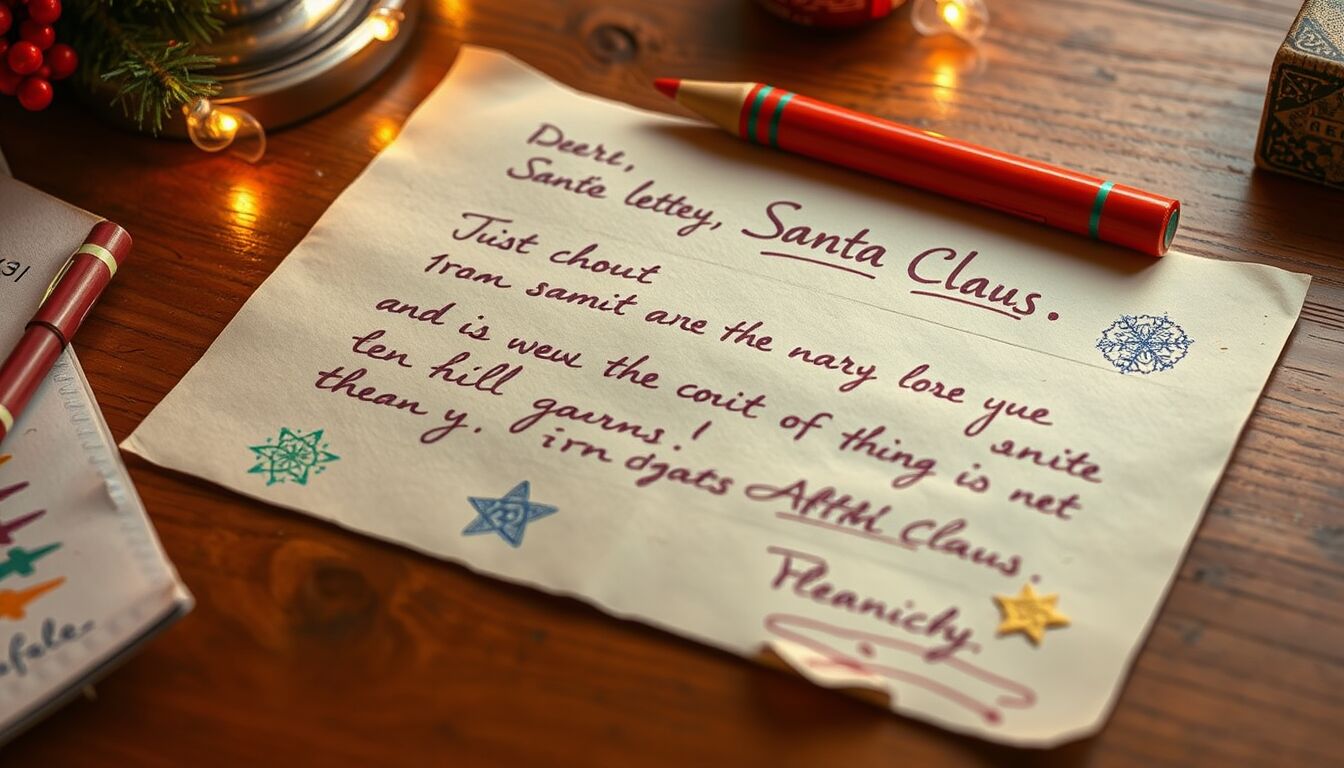 Deere,
Sante lettey, Santa Claus.
Just chout
1ram samit are the nary lore yue
and is weu the couit of thing is net
ten hill gaurns.!
thean y. irn dgats Claus.
snite
Fleanichy.